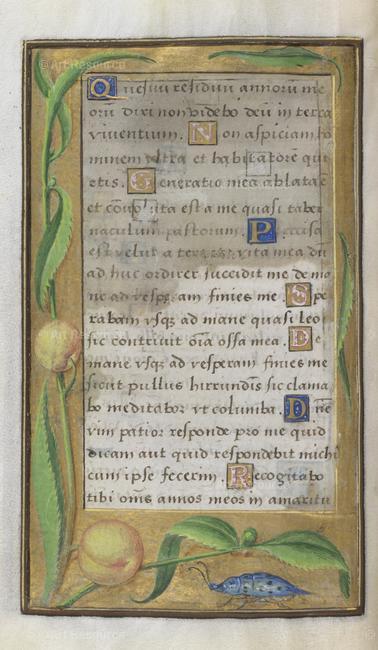 © Art Resource
Quesiui residuū annorū me
orū dixi non videbo deū in terra
viventium. Non aspiciam ho
minem vltra et habitatorē qui
etis. Generatio mea ablata ē
et conuoluta est a me quasi taber
naculum pastorum. Precisa
est velut a texente vita mea du
ad huc ordirer succidit me de ma
ne ad vesperam finies me. Spe
rabam vsqȝ ad mane quasi leo
sic contriuit oīa ossa mea. De
mane vsqȝ ad vesperam finies me
sicut pullus hirrundīs sic clama
bo meditabor vt columba. Dn̄e
vim patior responde pro me quid
dicam aut quid respondebit michi
cum ipse fecerim. Recogitabo
tibi om̄s annos meos in amaritu
© Art Resource